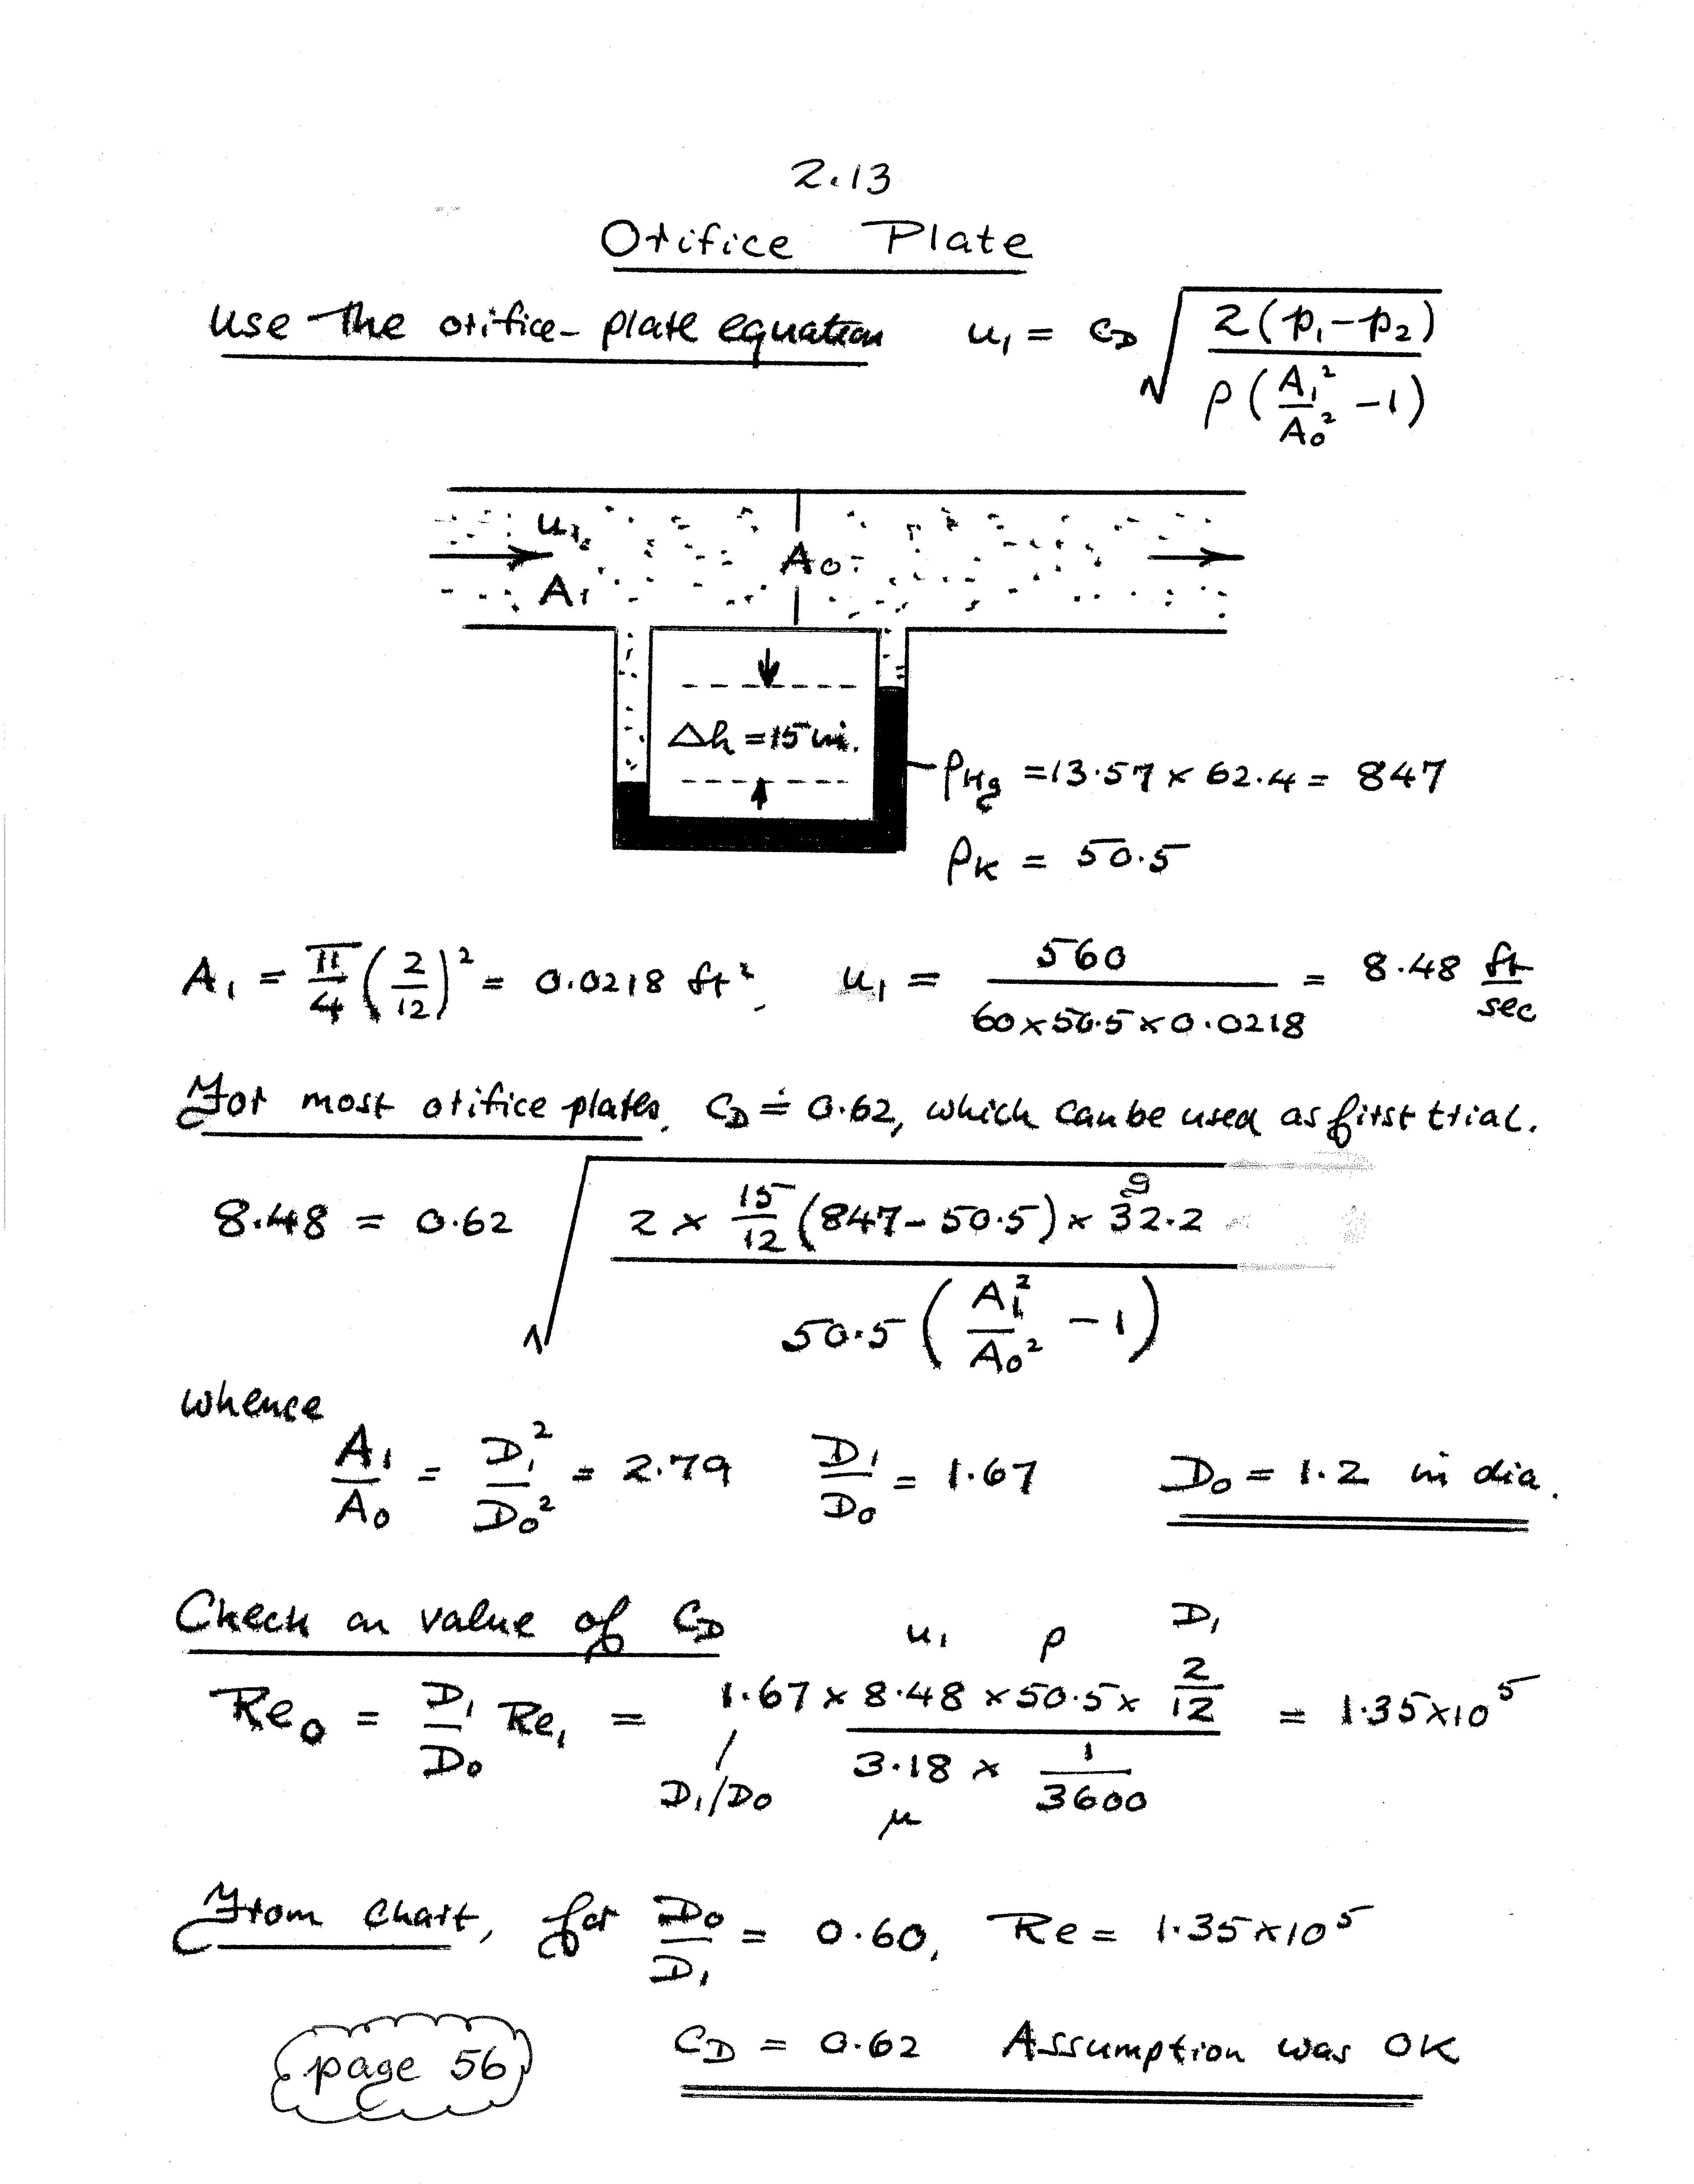 2.13
Orifice Plate
Use the orifice-plate equation u₁ = C_D √(2(p₁-p₂) / ρ(A₁²/A₀² -1))
u₁
A₀
A₁
Δh = 15 in.
ρHg = 13.57 × 62.4 = 847
ρK = 50.5
A₁ = π/4 (2/12)² = 0.0218 ft², u₁ = 560 / 60×50.5×0.0218 = 8.48 ft/sec
For most orifice plates, C_D ≐ 0.62, which can be used as first trial.
8.48 = 0.62 √(2 × 15/12 (847-50.5) × 32.2 / 50.5 (A₁²/A₀² - 1))
g
whence
A₁/A₀ = D₁²/D₀² = 2.79 D₁/D₀ = 1.67 D₀ = 1.2 in dia.
Check on value of C_D
u₁ ρ D₁
Re₀ = D₁/D₀ Re₁ = 1.67 × 8.48 × 50.5 × 2/12 / 3.18 × 1/3600 = 1.35×10⁵
D₁/D₀ μ
From chart, for D₀/D₁ = 0.60, Re = 1.35×10⁵
page 56
C_D = 0.62 Assumption was OK